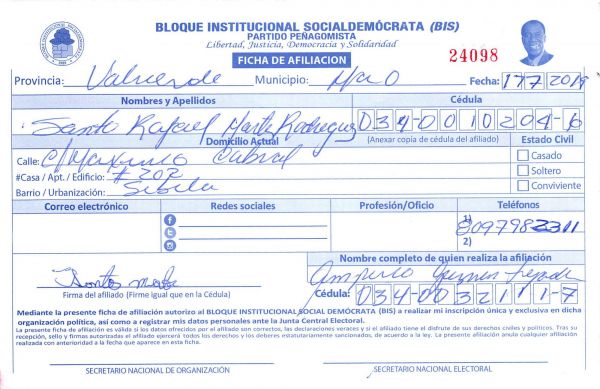 BLOQUE INSTITUCIONAL SOCIALDEMÓCRATA (BIS)
PARTIDO PEÑAGOMISTA
Libertad, Justicia, Democracia y Solidaridad
FICHA DE AFILIACION
24098
Provincia: Valverde Municipio: Mao Fecha: 17 7 2019
Nombres y Apellidos Cédula
Santo Rafael Marte Rodriguez 034-0010204-6
Domicilio Actual (Anexar copia de cédula del afiliado) Estado Civil
Calle: C/Maximo Cabral Casado
#Casa / Apt. / Edificio: #202 Soltero
Barrio / Urbanización: Sibila Conviviente
Correo electrónico Redes sociales Profesión/Oficio Teléfonos
1) 8097982311
2)
Nombre completo de quien realiza la afiliación
Santo Marte Amparo Guzman
Firma del afiliado (Firme igual que en la Cédula) Cédula: 034-0032111-7
Mediante la presente ficha de afiliación autorizo al BLOQUE INSTITUCIONAL SOCIAL DEMÓCRATA (BIS) a realizar mi inscripción única y exclusiva en dicha
organización política, así como a registrar mis datos personales ante Junta Central Electoral.
La presente ficha de afiliación es válida si los datos ofrecidos por el afiliado son correctos, las declaraciones veraces y si el afiliado tiene el disfrute de sus derechos civiles y políticos. Tras su
recepción, sello y firmas autorizadas el afiliado ejercerá todos los derechos y los deberes estatutariamente sancionados, de acuerdo a la ley. La presente afiliación anula cualquier afiliación
realizada con anterioridad a la fecha que aparece en esta ficha.
SECRETARIO NACIONAL DE ORGANIZACIÓN SECRETARIO NACIONAL ELECTORAL